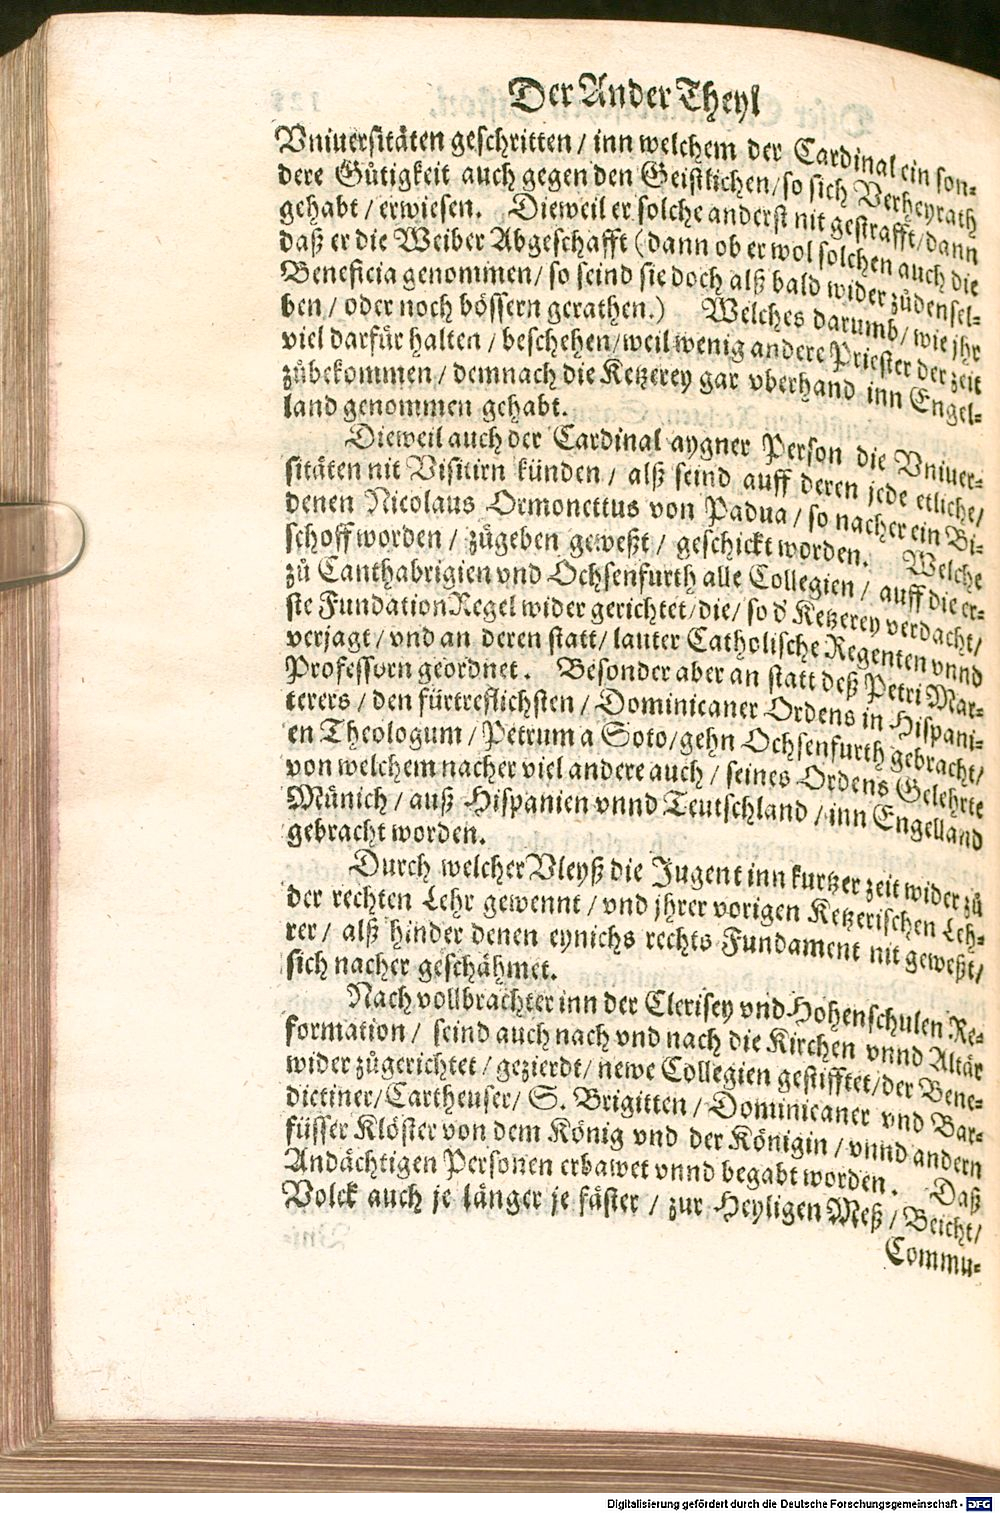 Der Ander Theyl
Vniuersitäten geschritten / inn welchem der Cardinal ein son-
dere Gütigkeit auch gegen den Geistlichen / so sich Verheyrath
gehabt / erwiesen. Dieweil er solche anderst nit gestrafft / dann
daß er die Weiber Abgeschafft (dann ob er wol solchen auch die
Beneficia genommen / so seind sie doch alß bald wider zů densel-
ben / oder noch bössern gerathen.) Welches darumb / wie jhr
viel darfür halten / beschehen / weil wenig andere Priester der zeit
zůbekommen / demnach die Ketzerey gar vberhand inn Engel-
land genommen gehabt.
Dieweil auch der Cardinal aygner Person die Vniuer-
sitäten nit Visitirn künden / alß seind auff deren jede etliche /
denen Nicolaus Ormonettus von Padua / so nacher ein Bi-
schoff worden / zůgeben geweßt / geschickt worden. Welche
zů Canthabrigien vnd Ochsenfurth alle Collegien / auff die er-
ste Fundation Regel wider gerichtet / die / so d' Ketzerey verdacht /
verjagt / vnd an deren statt / lauter Catholische Regenten vnnd
Professorn geordnet. Besonder aber an statt deß Petri Mar-
terers / den fürtreflichsten / Dominicaner Ordens in Hispani-
en Theologum / Petrum a Soto / gehn Ochsenfurth gebracht /
von welchem nacher viel andere auch / seines Ordens Gelehrte
Münich / auß Hispanien vnnd Teutschland / inn Engelland
gebracht worden.
Durch welcher Vleyß die Jugent inn kurtzer zeit wider zů
der rechten Lehr gewennt / vnd jhrer vorigen Ketzerischen Leh-
rer / alß hinder denen eynichs rechts Fundament nit geweßt /
sich nacher geschähmet.
Nach vollbrachter inn der Clerisey vnd Hohenschulen Re-
formation / seind auch nach vnd nach die Kirchen vnnd Altär
wider zůgerichtet / gezierdt / newe Collegien gestifftet / der Bene-
dictiner / Cartheuser / S. Brigitten / Dominicaner vnd Bar-
füsser Klöster von dem König vnd der Königin / vnnd andern
Andächtigen Personen erbawet vnnd begabt worden. Daß
Volck auch je länger je fäster / zur Heyligen Meß / Beicht /
Commu-
Digitalisierung gefördert durch die Deutsche Forschungsgemeinschaft - DFG